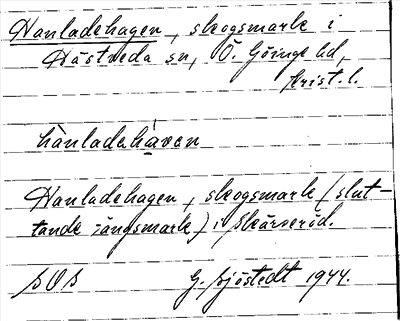 Hanladehagen, skogsmark i
Hästveda sn, Ö. Göinge hd,
Krist. l.
hànladehàven
Hanladehagen, skogsmark (slut-
tande ängsmark) i Skärseröd.
SOS G. Sjöstedt 1944.